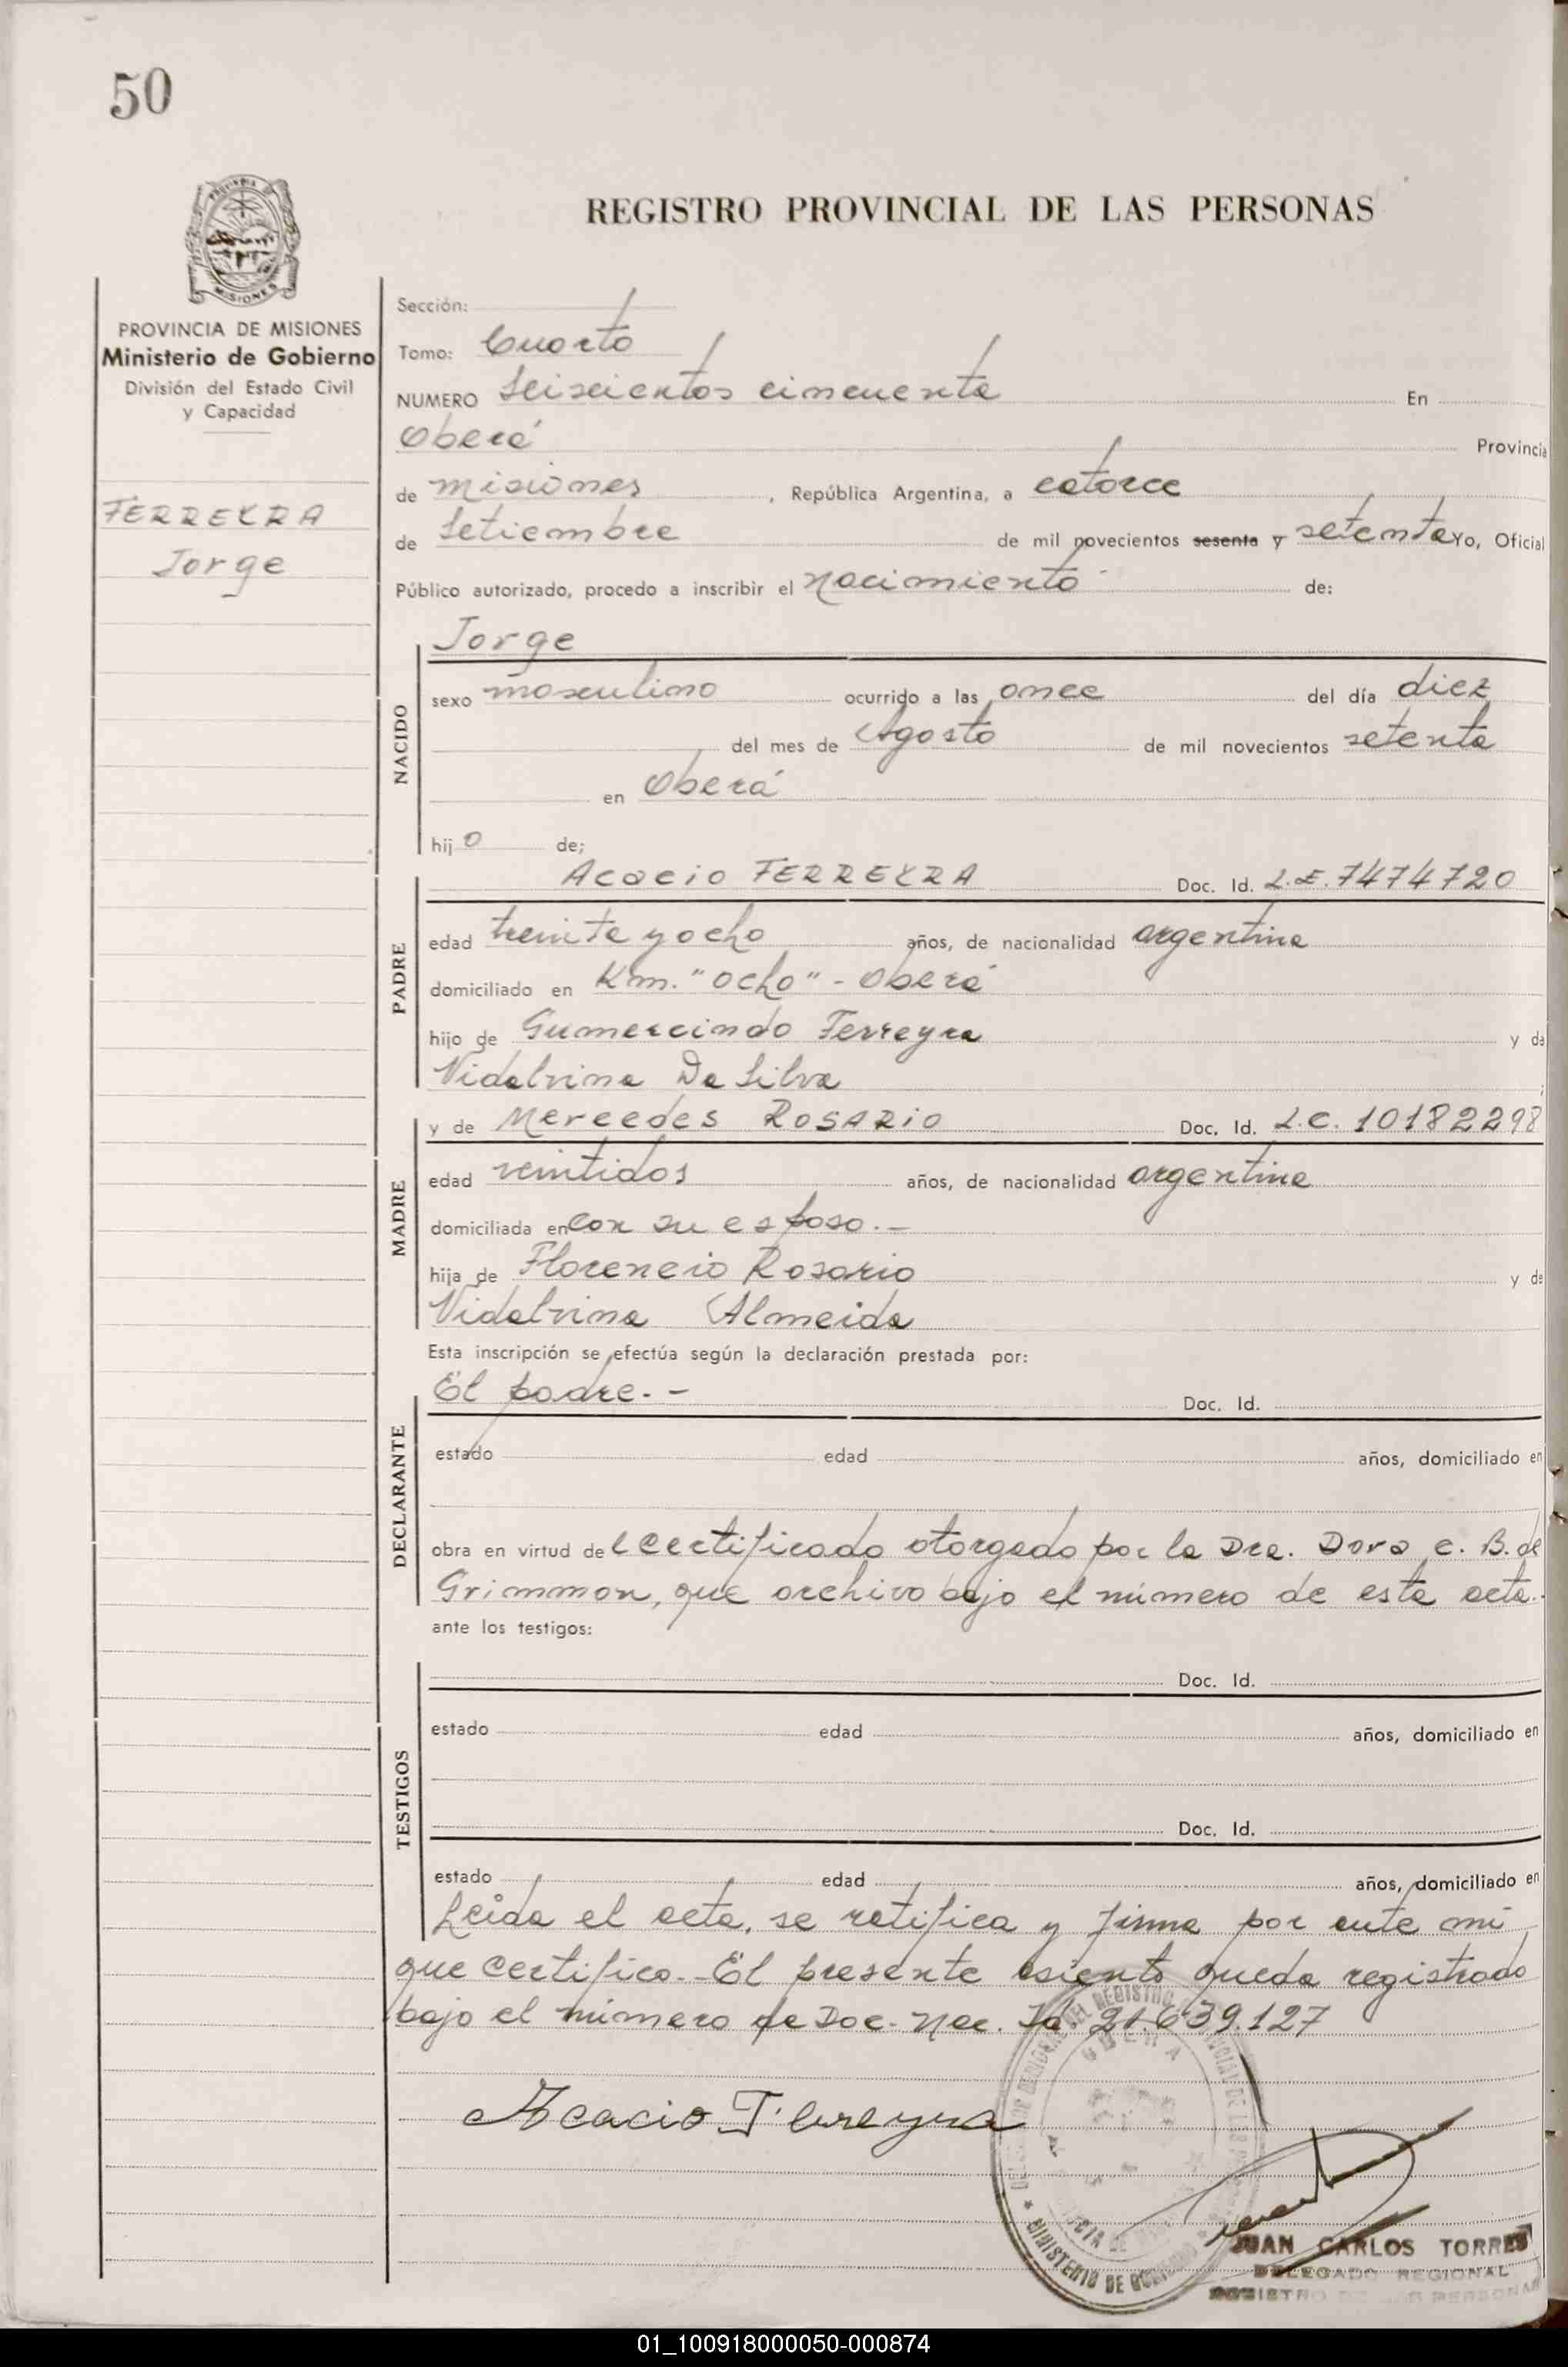 50
REGISTRO PROVINCIAL DE LAS PERSONAS
MISIONES
PROVINCIA DE MISIONES
Ministerio de Gobierno
División del Estado Civil
y Capacidad
FERREYRA
Jorge
Sección:
Tomo: Cuarto
NUMERO Seiscientos cincuenta En
Oberá Provincia
de Misiones, República Argentina, a catorce
de Setiembre de mil novecientos sesenta y setenta Yo, Oficial
Público autorizado, procedo a inscribir el nacimiento de:
NACIDO
Jorge
sexo masculino ocurrido a las once del día diez
del mes de Agosto de mil novecientos setenta
en Oberá
hijo de;
PADRE
Acacio FERREYRA Doc. Id. L.E. 7474720
edad treinta y ocho años, de nacionalidad argentina
domiciliado en Km. "ocho" - Oberá
hijo de Gumercindo Ferreyra y de
Vidalvina Da Silva ;
MADRE
y de Mercedes ROSARIO Doc. Id. L.C. 10182298
edad veintidos años, de nacionalidad argentina
domiciliada en con su esposo.-
hija de Florencio Rosario y de
Vidalvina Almeida
Esta inscripción se efectúa según la declaración prestada por:
DECLARANTE
El padre.- Doc. Id.
estado edad años, domiciliado en
obra en virtud del certificado otorgado por la Dra. Dora C. B. de
Grimmon, que archivo bajo el número de esta acta.-
ante los testigos:
TESTIGOS
Doc. Id.
estado edad años, domiciliado en
Doc. Id.
estado edad años, domiciliado en
Leida el acta, se ratifica y firma por ante mi
que certifico.- El presente asiento queda registrado
bajo el número de Doc. Nac. Id 21.639.127
Acacio Ferreyra
MINISTERIO DE GOBIERNO
JUAN CARLOS TORRES
DELEGADO REGIONAL
REGISTRO DE LAS PERSONAS
01_100918000050-000874